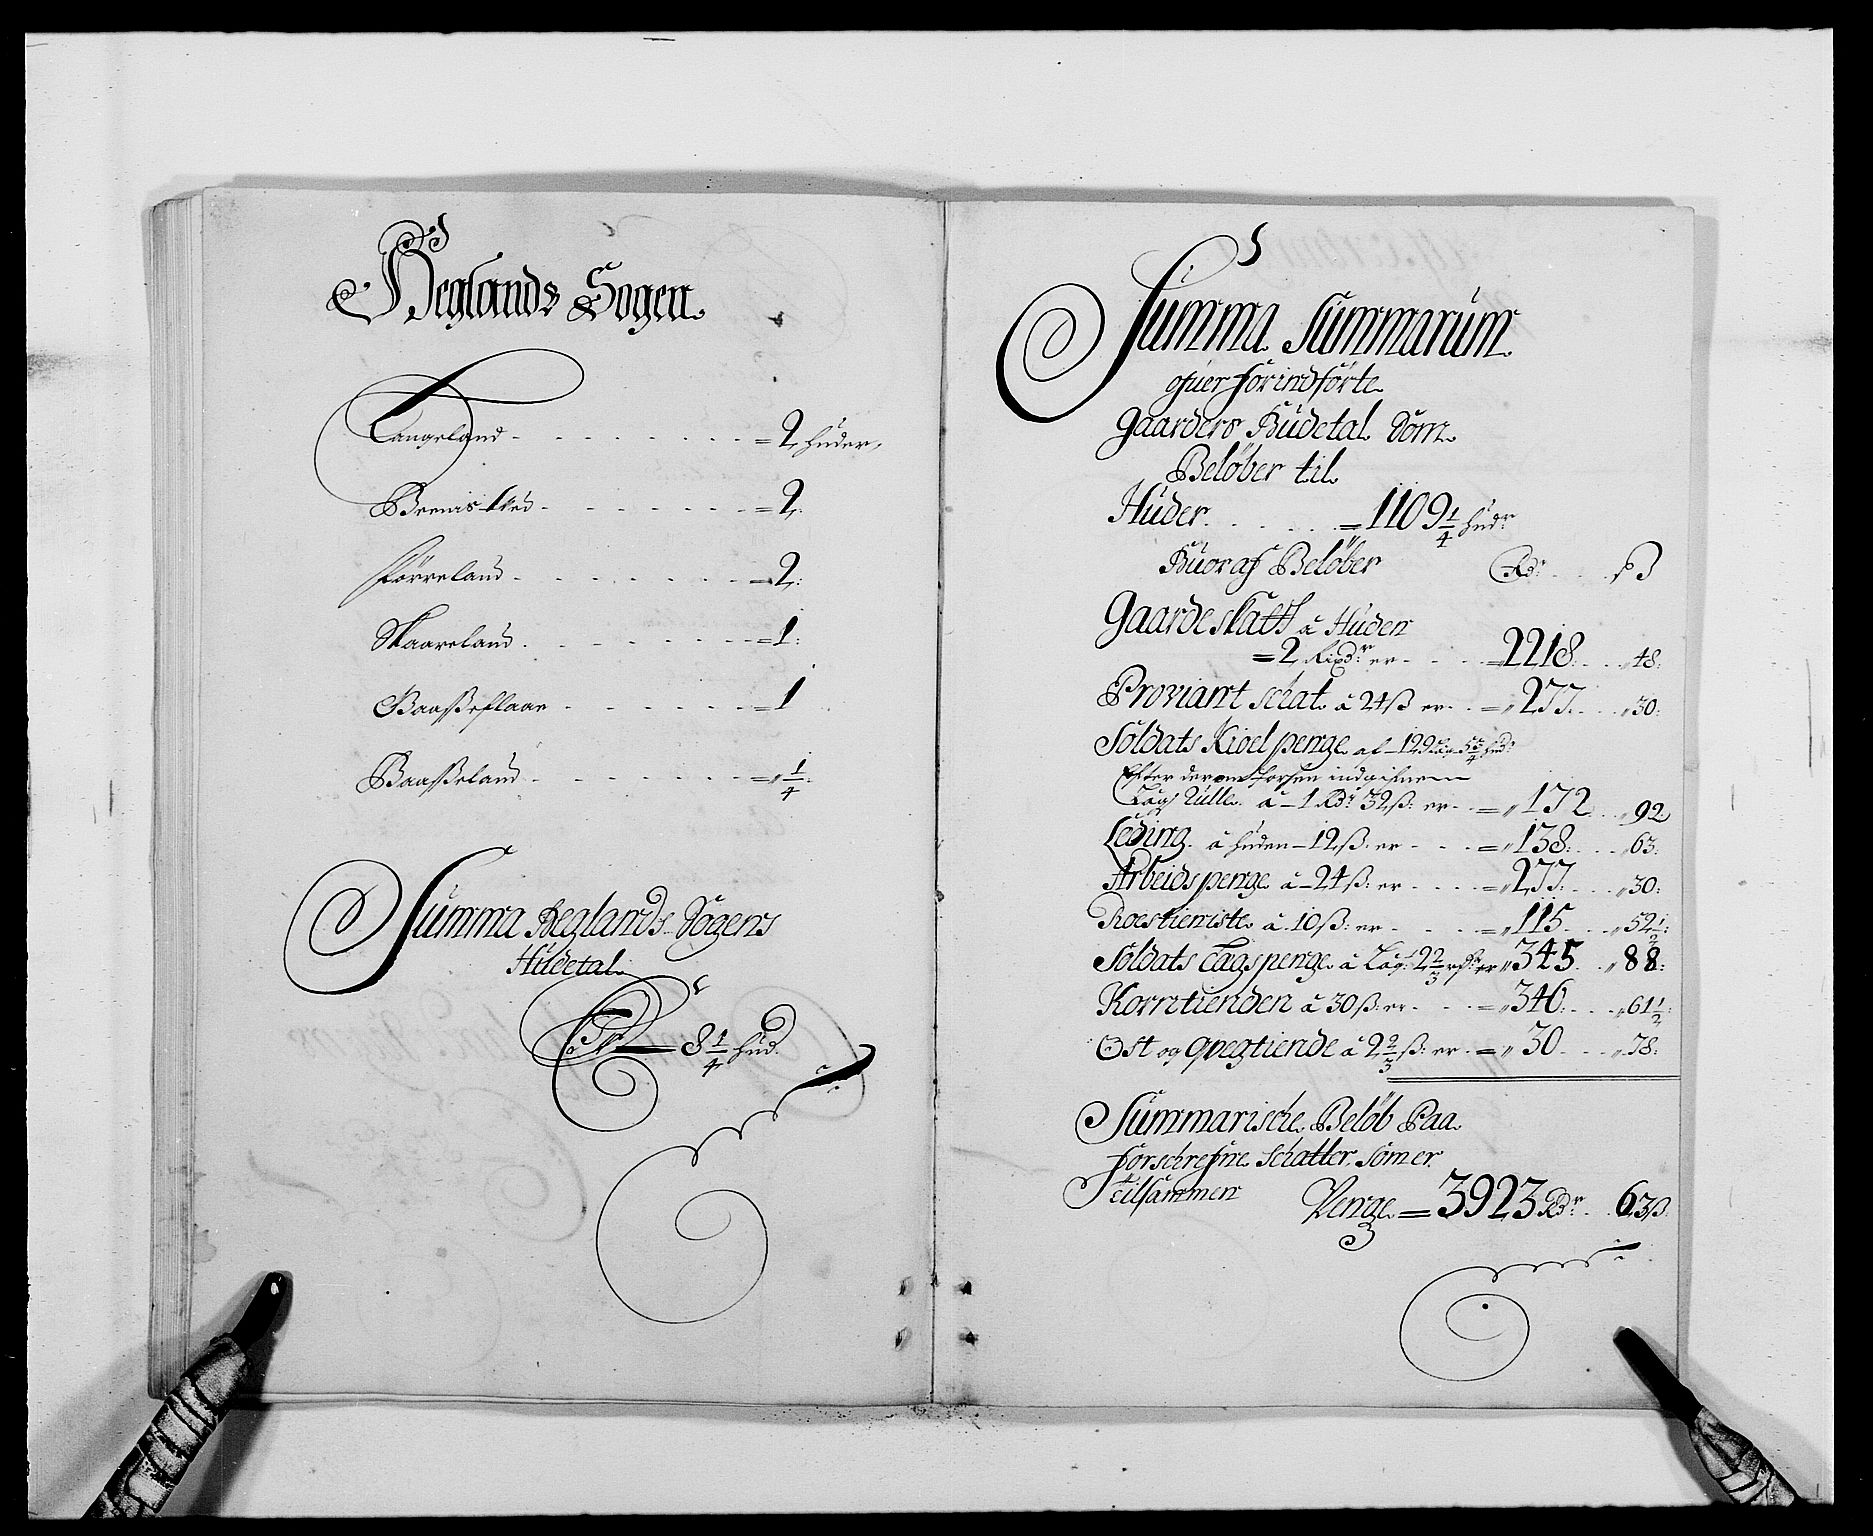 Heglands Sogen.
Langeland - - - - - - - - = 2 huder,
Brenisted - - - - - - - = 2,
Førreland - - - - - - - = 2:
Skaareland. - - - - - - = 1:
Baaßeflaae - - - - - - = 1
Baaßeland - - - - - - - = " 1/4:
Summa Heglands Sogens
Hudetal
Er = 8 1/4 hud.
Summa Summarum
ofuer forindførte
Gaarders Hudetal Som
Beløber til
Huder. . . . . = 1109 1/4 hudr
Huoraf Beløber Rdr - - ß
Gaardeskatt â Huden
= 2 Rixdr er - - - = 2218: - - " 48:
Proviant schat â 24 ß er - - = " 277. - - " 30:
Soldats Kioel penge af 129 Læg 5 3/4 hud:
Efter derom forhen indgifnene
Læg Rulle â - 1 Rdr 32 ß: er - - = " 172 - - " 92
Leding â huden - 12 ß: er - - - = " 138: - - " 63:
Arbeids penge â - 24 ß: er - - - = " 277: - - " 30:
Roestieniste â 10 ß: er - - - = " 115 - - " 52 1/2:
Soldats Lægs penge â Læg 2 2/3 rdr er " 345 - - " 88:
Korntienden â 30 ß: er - - - = " 346: - - " 61 1/2:
Ost og qvegtiende â 2 2/3 ß: er - = " 30 - - " 78:
Summarische Beløb Paa
forschrefne Schatter, som er
tilsammen Penge = 3923 Rdr - 63 ß.